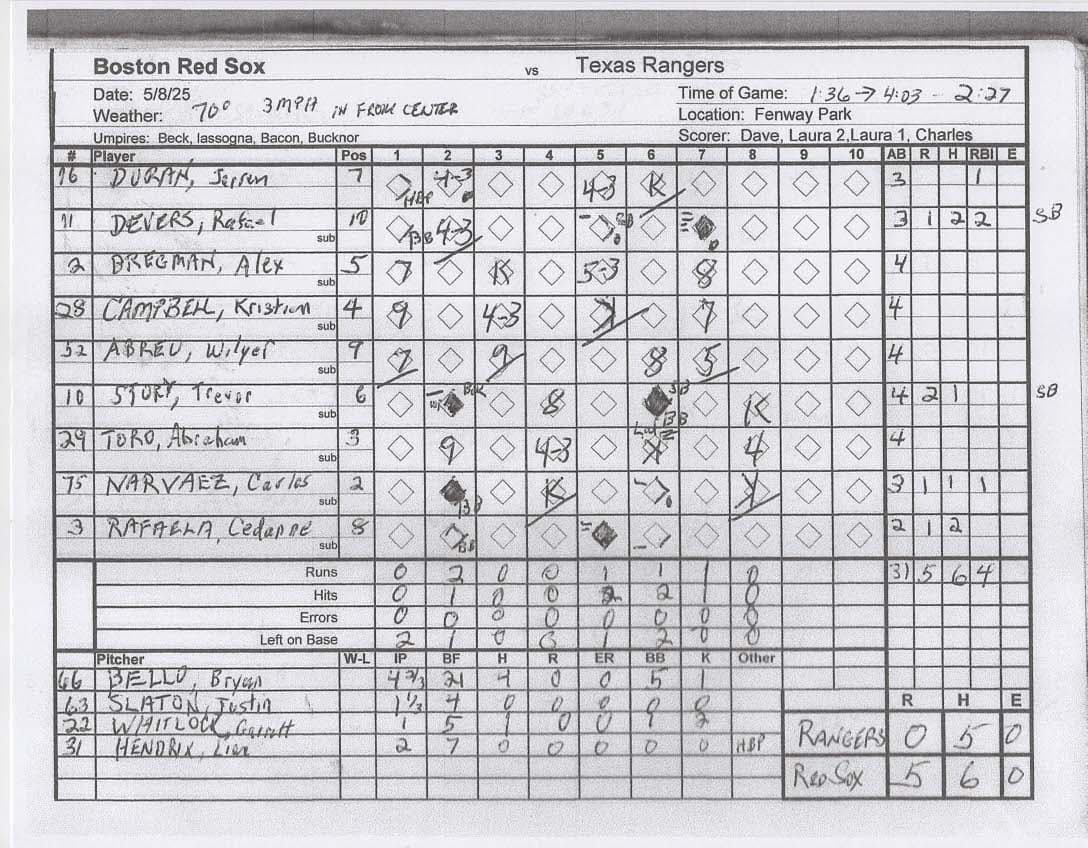 Boston Red Sox vs Texas Rangers
Date: 5/8/25 Time of Game: 1:36 → 4:03 - 2:27
Weather: 70° 3 MPH IN FROM CENTER Location: Fenway Park
Umpires: Beck, Iassogna, Bacon, Bucknor Scorer: Dave, Laura 2,Laura 1, Charles
# Player Pos 1 2 3 4 5 6 7 8 9 10 AB R H RBI E
16 DURAN, Jarren 7 HBP 4-3 4-3 K 3 1
11 DEVERS, Rafael sub 10 BB 4-3 3 1 2 2 SB
2 BREGMAN, Alex sub 5 7 K 5-3 8 4
28 CAMPBELL, Kristian sub 4 9 4-3 K 7 4
52 ABREU, Wilyer sub 9 7 9 8 5 4
10 STORY, Trevor sub 6 8 BB K 4 2 1 SB
29 TORO, Abraham sub 3 9 4-3 K 4 4
75 NARVAEZ, Carlos sub 2 BB K K 3 1 1 1
3 RAFAELA, Cedanne sub 8 BB 2 1 2
Runs 0 2 0 0 1 1 1 0 31 5 6 4
Hits 0 1 0 0 2 2 1 0
Errors 0 0 0 0 0 0 0 0
Left on Base 2 1 0 0 1 2 0 0
Pitcher W-L IP BF H R ER BB K Other
66 BELLO, Bryan 4 2/3 21 4 0 0 5 1
63 SLATON, Justin 1 1/3 4 0 0 0 0 0 R H E
22 WHITLOCK, Garrett 1 5 1 0 0 1 2
31 HENDRIX, Liam 2 7 0 0 0 0 0 HBP
RANGERS 0 5 0
Red Sox 5 6 0